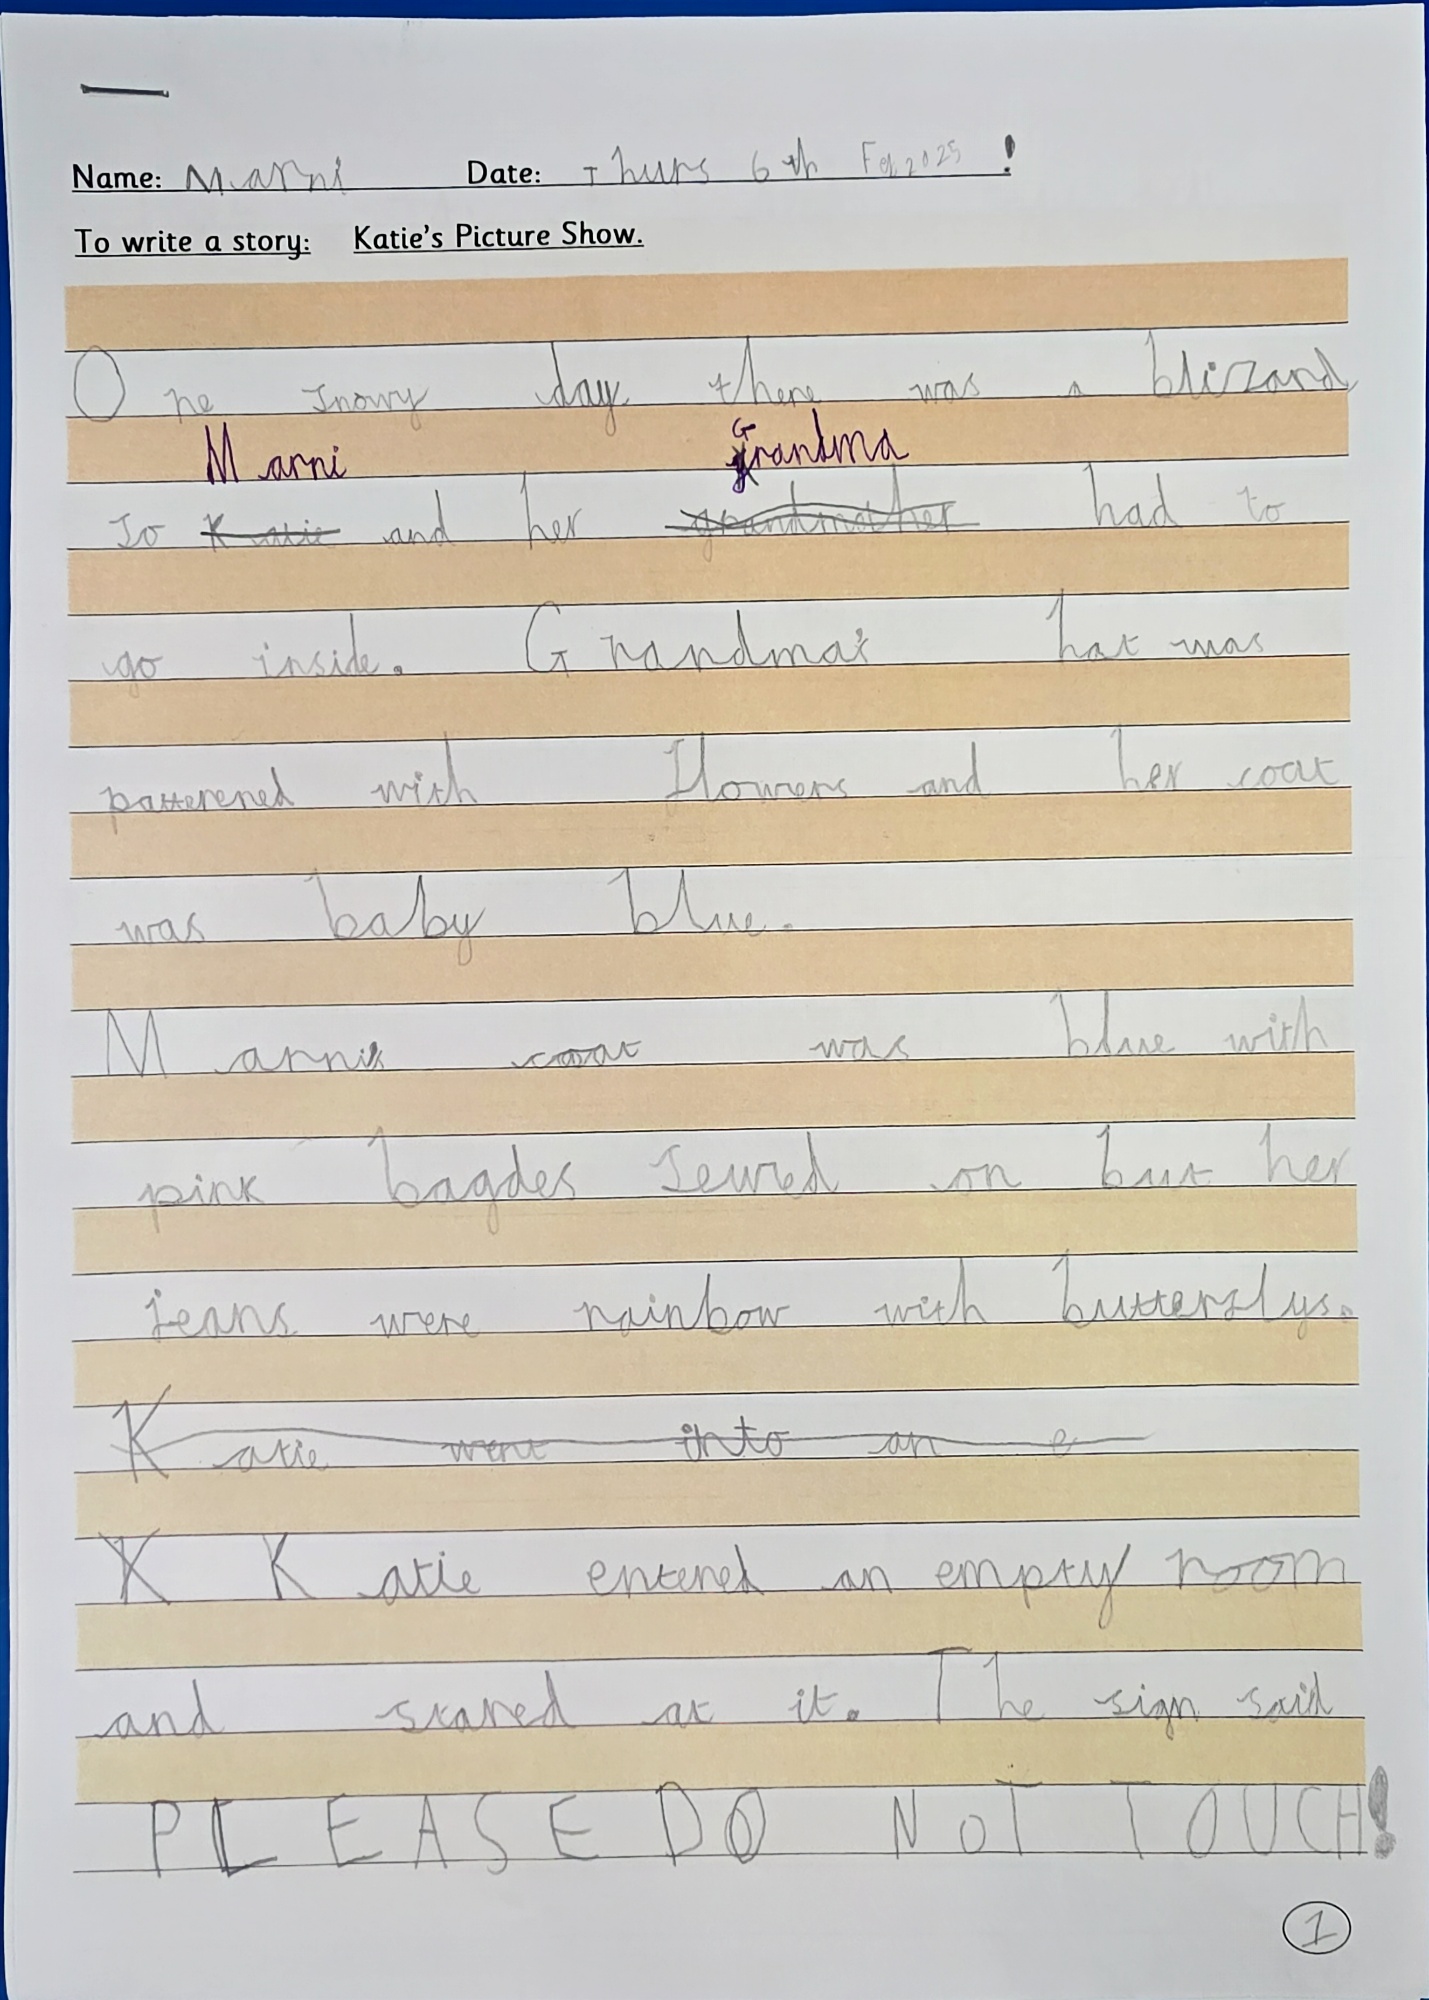 Name: Marni Date: Thurs 6th Feb 2025 !
To write a story: Katie's Picture Show.
One snowy day there was a blizzard
Marni Grandma
So Katie and her grandmother had to
go inside. Grandma's hat was
patterened with flowers and her coat
was baby blue.
Marnis coat was blue with
pink bagdes sewed on but her
jeans were rainbow with butterflys.
Katie went into an e
K Katie entered an empty room
and stared at it. The sign said
PLEASE DO NOT TOUCH!
1